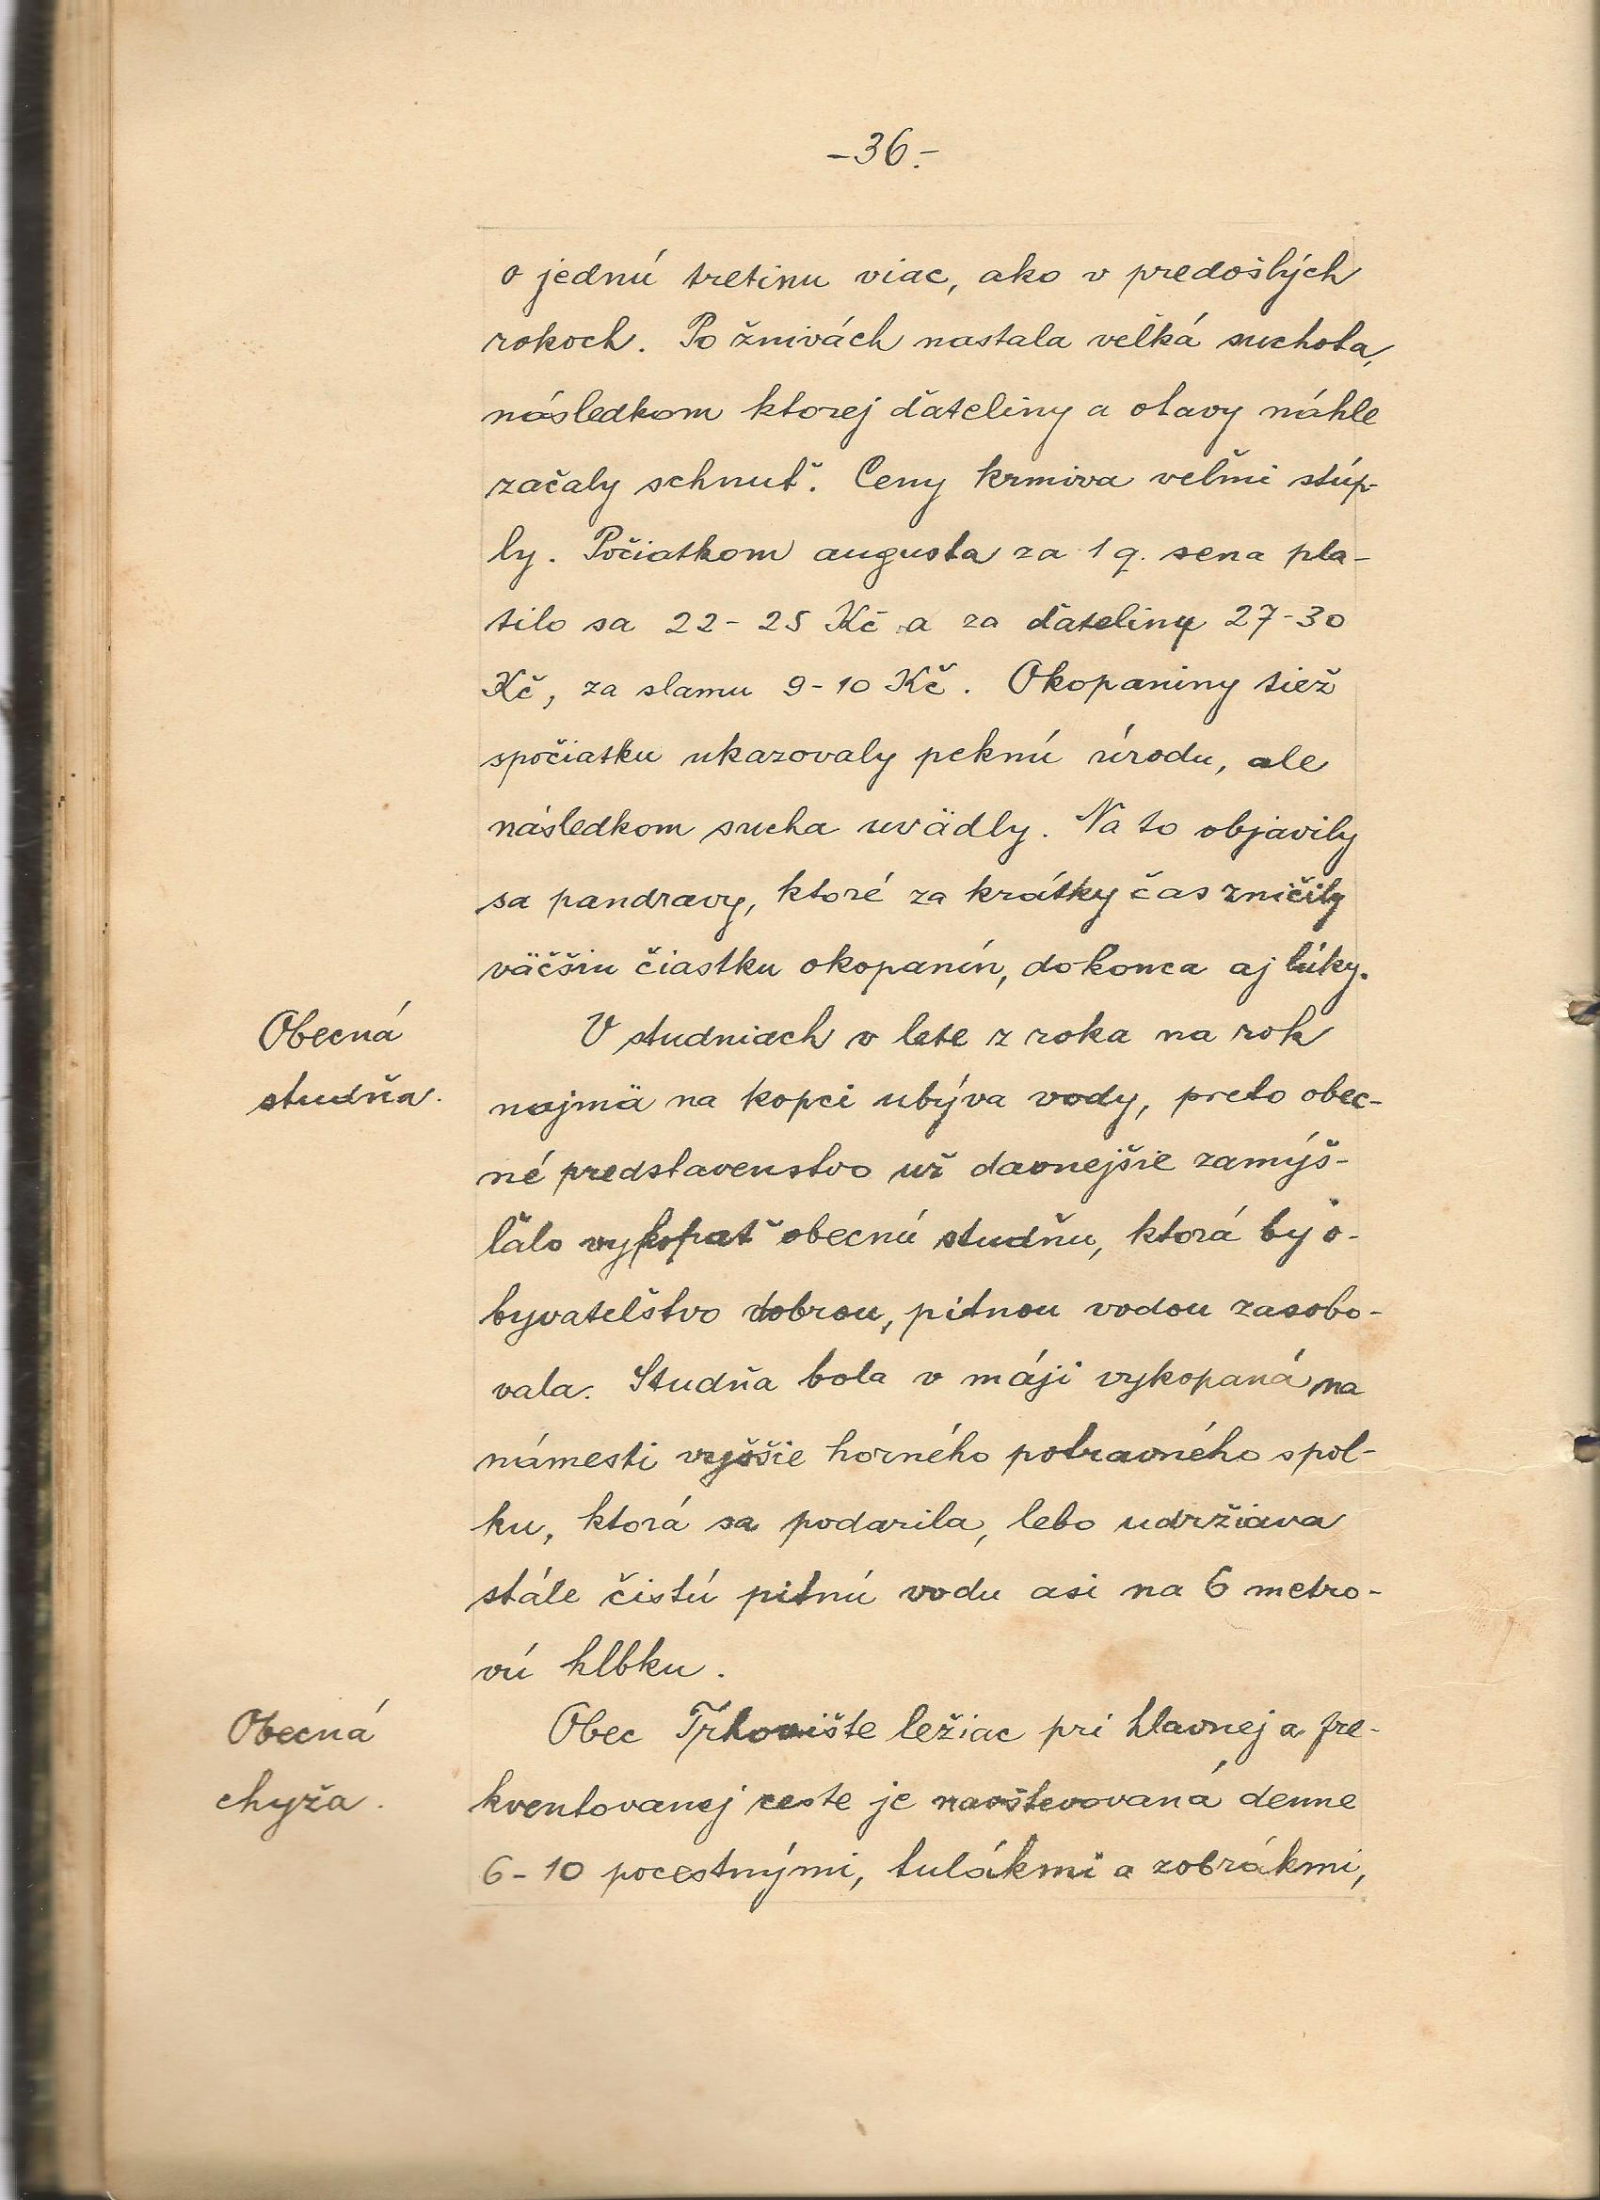 -36.-
o jednú tretinu viac, ako v predošlých
rokoch. Po žnivách nastala veľká suchota,
následkom ktorej ďateliny a otavy náhle
začaly schnuť. Ceny krmiva veľmi stúp-
ly. Počiatkom augusta za 1 q. sena pla-
tilo sa 22-25 Kč a za ďateliny 27-30
Kč, za slamu 9-10 Kč. Okopaniny tiež
spočiatku ukazovaly peknú úrodu, ale
následkom sucha uvädly. Na to objavily
sa pandravy, ktoré za krátky čas zničily
väčšiu čiastku okopanín, dokonca aj lúky.
Obecná
studňa.
V studniach v lete z roka na rok
najmä na kopci ubýva vody, preto obec-
né predstavenstvo už davnejšie zamýš-
ľalo vykopať obecnú studňu, ktorá by o-
byvateľstvo dobrou, pitnou vodou zasobo-
vala. Studňa bola v máji vykopaná na
námesti vyššie horného potravného spol-
ku, ktorá sa podarila, lebo udržiava
stále čistú pitnú vodu asi na 6 metro-
vú hlbku.
Obecná
chyža.
Obec Trhovište ležiac pri hlavnej a fre-
kventovanej ceste je navštevovaná denne
6-10 pocestnými, tulákmi a zobrákmi,